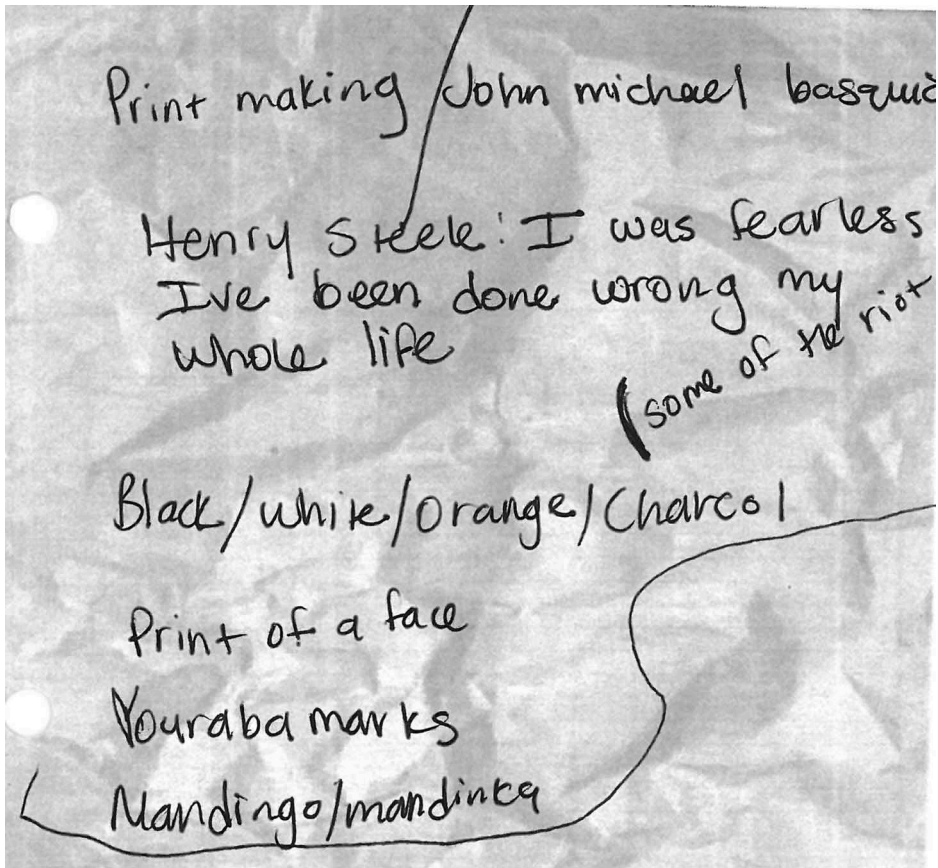 Print making / John michael basquia
Henry Steele: I was fearless
Ive been done wrong my
whole life
(some of the riot
Black/white/orange/Charcol
Print of a face
Youraba marks
Mandingo/mandinka